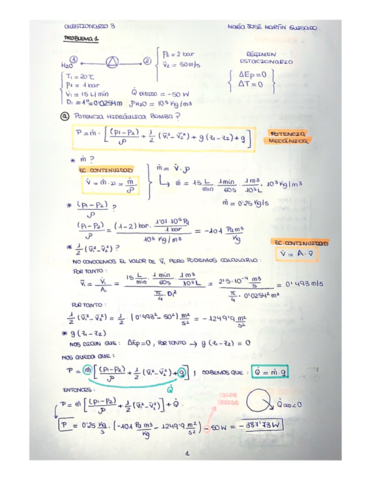 CUESTIONARIO 3 MARÍA JOSÉ MARTÍN
PROBLEMA 1
H2O ① ② P2 = 2 bar
v̄2 = 50 m/s
RÉGIMEN
ESTACIONARIO
T1 = 20ºC
P1 = 1 bar
V̇1 = 15 L/min
D1 = 1" = 0'0254m
Q̇ = -50W
ρH2O = 10³ Kg/m³
ΔEp = 0
ΔT = 0
ⓐ POTENCIA HIDRÁULICA BOMBA?
P = ṁ · [(P1-P2)/ρ + 1/2 (v̄1² - v̄2²) + g(z1-z2) + q]
POTENCIA
MECÁNICA
* ṁ?
EC. CONTINUIDAD
V̇ = ṁ · v = ṁ/ρ
ṁ = V̇ · ρ
ṁ = 15 L/min · 1min/60s · 1m³/10³L · 10³ Kg/m³
ṁ = 0'25 Kg/s
* (P1-P2)/ρ ?
(P1-P2)/ρ = (1-2) bar · 1'01·10⁵ Pa/1 bar / 10³ Kg/m³ = -101 Pa m³/Kg
* 1/2 (v̄1² - v̄2²)?
EC CONTINUIDAD
V̇ = A · v̄
NO CONOCEMOS EL VALOR DE v̄1 PERO PODEMOS CALCULARLO
POR TANTO:
v̄1 = V̇1/A1 = 15 L/min · 1min/60s · 1m³/10³L / π/4 · D1² = 2'5·10⁻⁴ m³/s / π/4 · 0'0254² m² = 0'493 m/s
POR TANTO:
1/2 (v̄1² - v̄2²) = 1/2 (0'493² - 50²) m²/s² = -1249'9 m²/s²
* g(z1-z2)
NOS DICEN QUE: ΔEp=0, POR TANTO → g(z1-z2) = 0
NOS QUEDA QUE:
P = ṁ [(P1-P2)/ρ + 1/2 (v̄1² - v̄2²) + q] ; SABEMOS QUE: Q̇ = ṁ q
Q̇
ENTONCES:
P = ṁ [(P1-P2)/ρ + 1/2 (v̄1² - v̄2²)] + Q̇
Q̇ <0
P = 0'25 Kg/s · (-101 Pa m³/Kg - 1249'9 m²/s²) - 50W = -387'73W
1